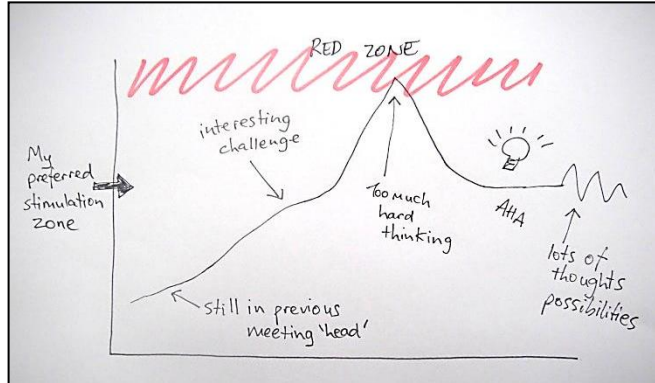 RED ZONE
My
preferred
stimulation
zone
interesting
challenge
Too much
hard
thinking
AHA
lots of
thoughts
possibilities
still in previous
meeting 'head'